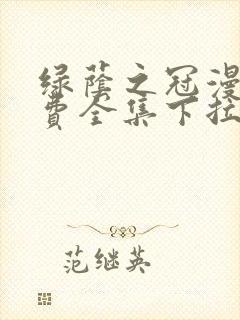 绿荫之冠漫
费全集下拉
范继英